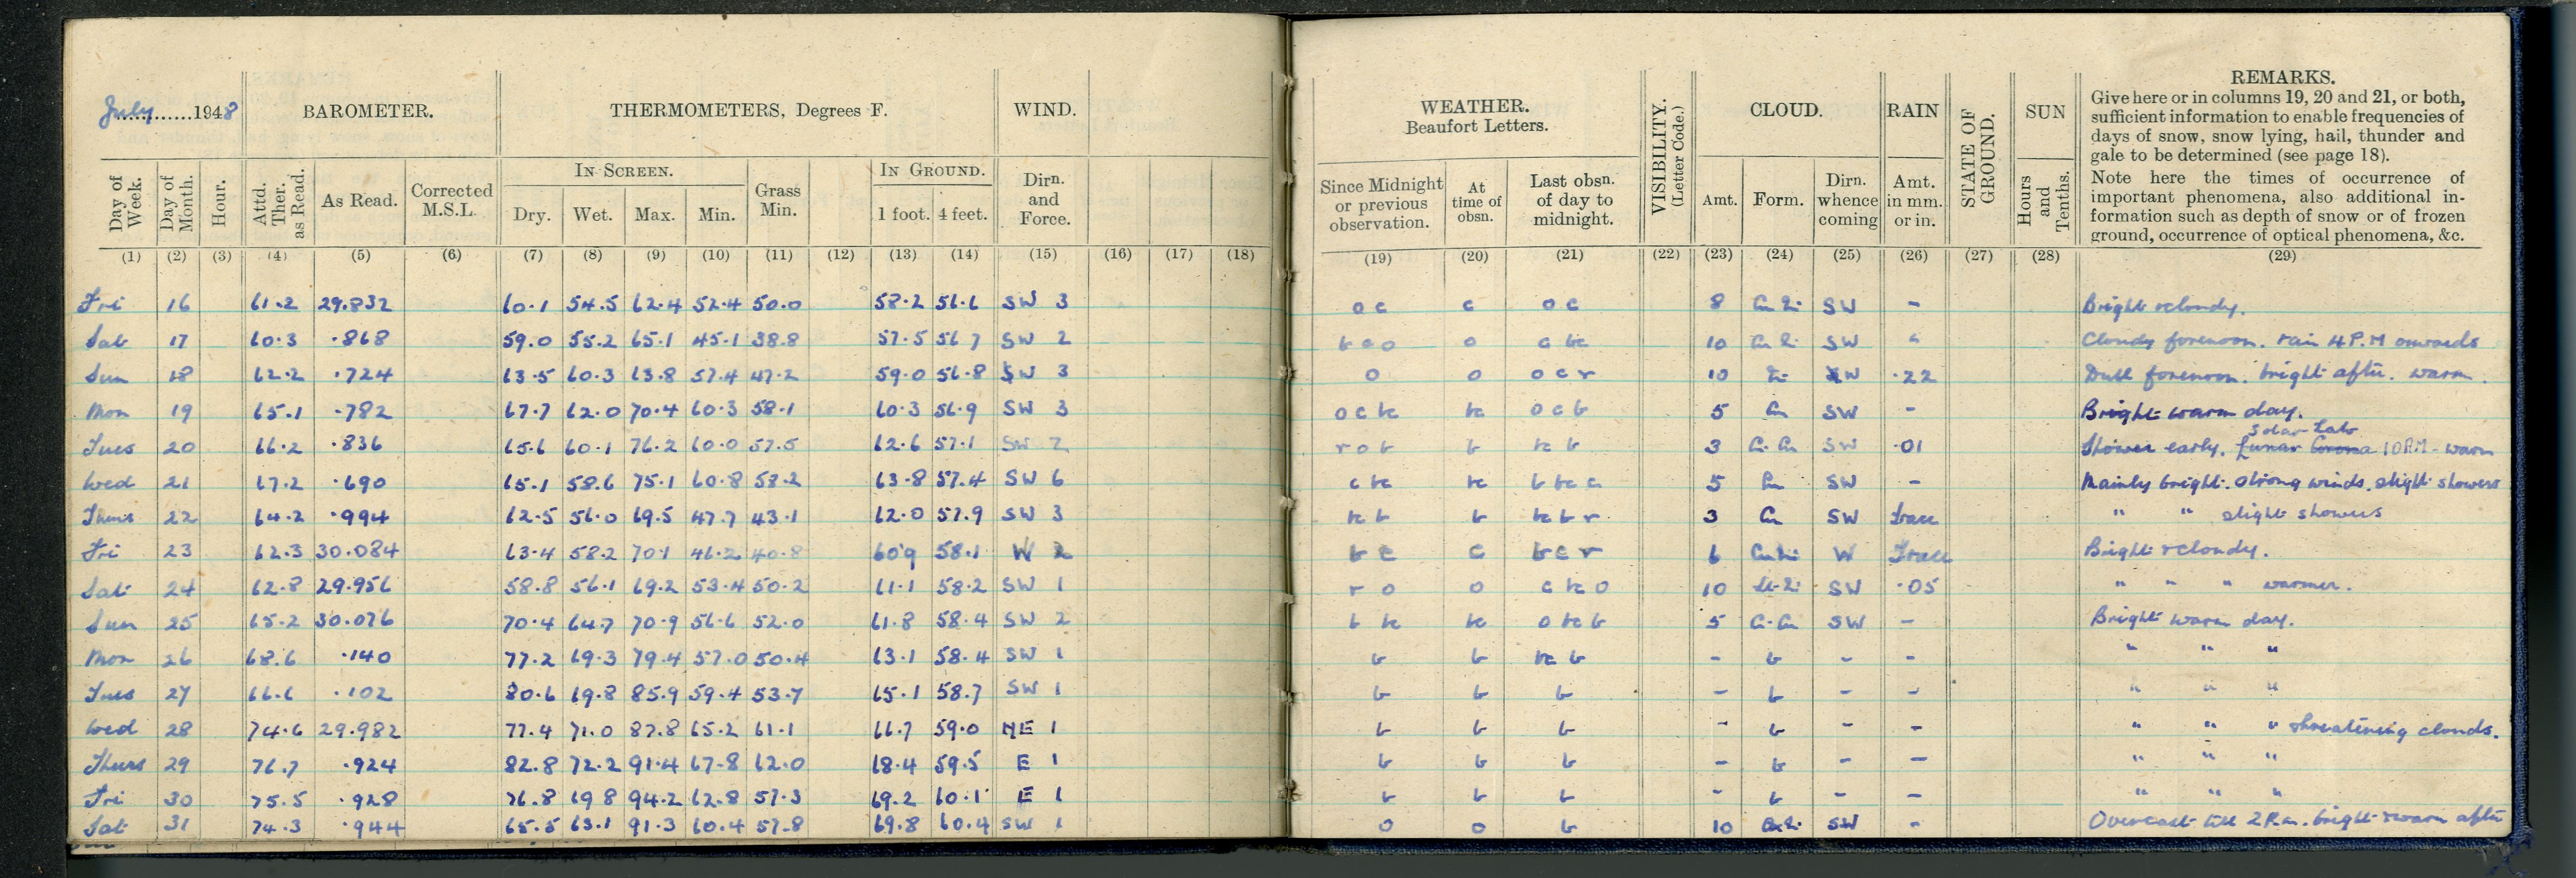 July 1948
BAROMETER.
THERMOMETERS, Degrees F.
WIND.
WEATHER.
Beaufort Letters.
VISIBILITY.
(Letter Code.)
CLOUD.
RAIN
STATE OF
GROUND.
SUN
REMARKS.
Give here or in columns 19, 20 and 21, or both,
sufficient information to enable frequencies of
days of snow, snow lying, hail, thunder and
gale to be determined (see page 18).
Note here the times of occurrence of
important phenomena, also additional in-
formation such as depth of snow or of frozen
ground, occurrence of optical phenomena, &c.
Day of Week. Day of Month. Hour. Attd. Ther. as Read. As Read. Corrected M.S.L. IN SCREEN. Dry. Wet. Max. Min. Grass Min. IN GROUND. 1 foot. 4 feet. Dirn. and Force.
Since Midnight or previous observation. At time of obsn. Last obsn. of day to midnight. Amt. Form. Dirn. whence coming Amt. in mm. or in. Hours and Tenths.
(1) (2) (3) (4) (5) (6) (7) (8) (9) (10) (11) (12) (13) (14) (15) (16) (17) (18) (19) (20) (21) (22) (23) (24) (25) (26) (27) (28) (29)
Fri 16 61.2 29.832 60.1 54.5 62.4 52.4 50.0 58.2 56.6 SW 3 o c c o c 8 SW - Bright & cloudy.
Sat 17 60.3 .868 59.0 55.2 65.1 45.1 38.8 57.5 56 7 SW 2 b c o o c bc 10 SW - Cloudy forenoon. rain 4 P.M onwards
Sun 18 62.2 .724 63.5 60.3 63.8 57.4 47.2 59.0 56.8 SW 3 o o o c r 10 SW .22 Dull forenoon. bright aftn. warm.
Mon 19 65.1 .782 67.7 62.0 70.4 60.3 58.1 60.3 56.9 SW 3 o c bc bc o c b 5 Cu SW - Bright warm day.
Tues 20 66.2 .836 65.6 60.1 76.2 60.0 57.5 62.6 57.1 SW 2 r o b b bc b 3 Ci. Cu SW .01 Shower early. Lunar Corona Solar halo 10 A.M - warm
Wed 21 67.2 .690 65.1 58.6 75.1 60.8 58.2 63.8 57.4 SW 6 c bc bc b bc c 5 SW - Mainly bright. strong winds. slight showers
Thurs 22 64.2 .994 62.5 56.0 69.5 47.7 43.1 62.0 57.9 SW 3 bc b b bc b r 3 Cu SW Trace " " slight showers
Fri 23 62.3 30.084 63.4 58.2 70.1 46.2 40.8 60.9 58.1 W 2 b c c b c r 6 W Trace Bright & cloudy.
Sat 24 62.8 29.956 58.8 56.1 69.2 53.4 50.2 61.1 58.2 SW 1 r o o c bc o 10 SW .05 " " " warmer.
Sun 25 65.2 30.076 70.4 64.7 70.9 56.6 52.0 61.8 58.4 SW 2 b bc bc o bc b 5 Ci. Cu SW - Bright warm day.
Mon 26 68.6 .140 77.2 69.3 79.4 57.0 50.4 63.1 58.4 SW 1 b b bc b - b - - " " "
Tues 27 66.6 .102 80.6 69.8 85.9 59.4 53.7 65.1 58.7 SW 1 b b b - b - - " " "
Wed 28 74.6 29.982 77.4 71.0 87.8 65.2 61.1 66.7 59.0 NE 1 b b b - b - - " " " threatening clouds.
Thurs 29 76.7 .924 82.8 72.2 91.4 67.8 62.0 68.4 59.5 E 1 b b b - b - - " " "
Fri 30 75.5 .928 76.8 69 8 94.2 62.8 57.3 69.2 60.1 E 1 b b b - b - - " " "
Sat 31 74.3 .944 65.5 63.1 91.3 60.4 57.8 69.8 60.4 SW 1 o o b 10 SW - Overcast till 2 P.m. bright & warm aftn